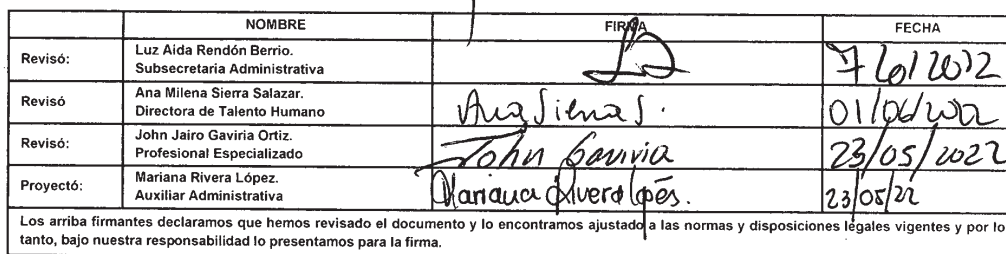 NOMBRE FIRMA FECHA
Revisó: Luz Aida Rendón Berrio.
Subsecretaria Administrativa
Revisó Ana Milena Sierra Salazar.
Directora de Talento Humano Ana Sierra S. 01/06/2022
Revisó: John Jairo Gaviria Ortiz.
Profesional Especializado John Gaviria 23/05/2022
Proyectó: Mariana Rivera López.
Auxiliar Administrativa Mariana Rivera lopés. 23/05/22
Los arriba firmantes declaramos que hemos revisado el documento y lo encontramos ajustado a las normas y disposiciones legales vigentes y por lo
tanto, bajo nuestra responsabilidad lo presentamos para la firma.